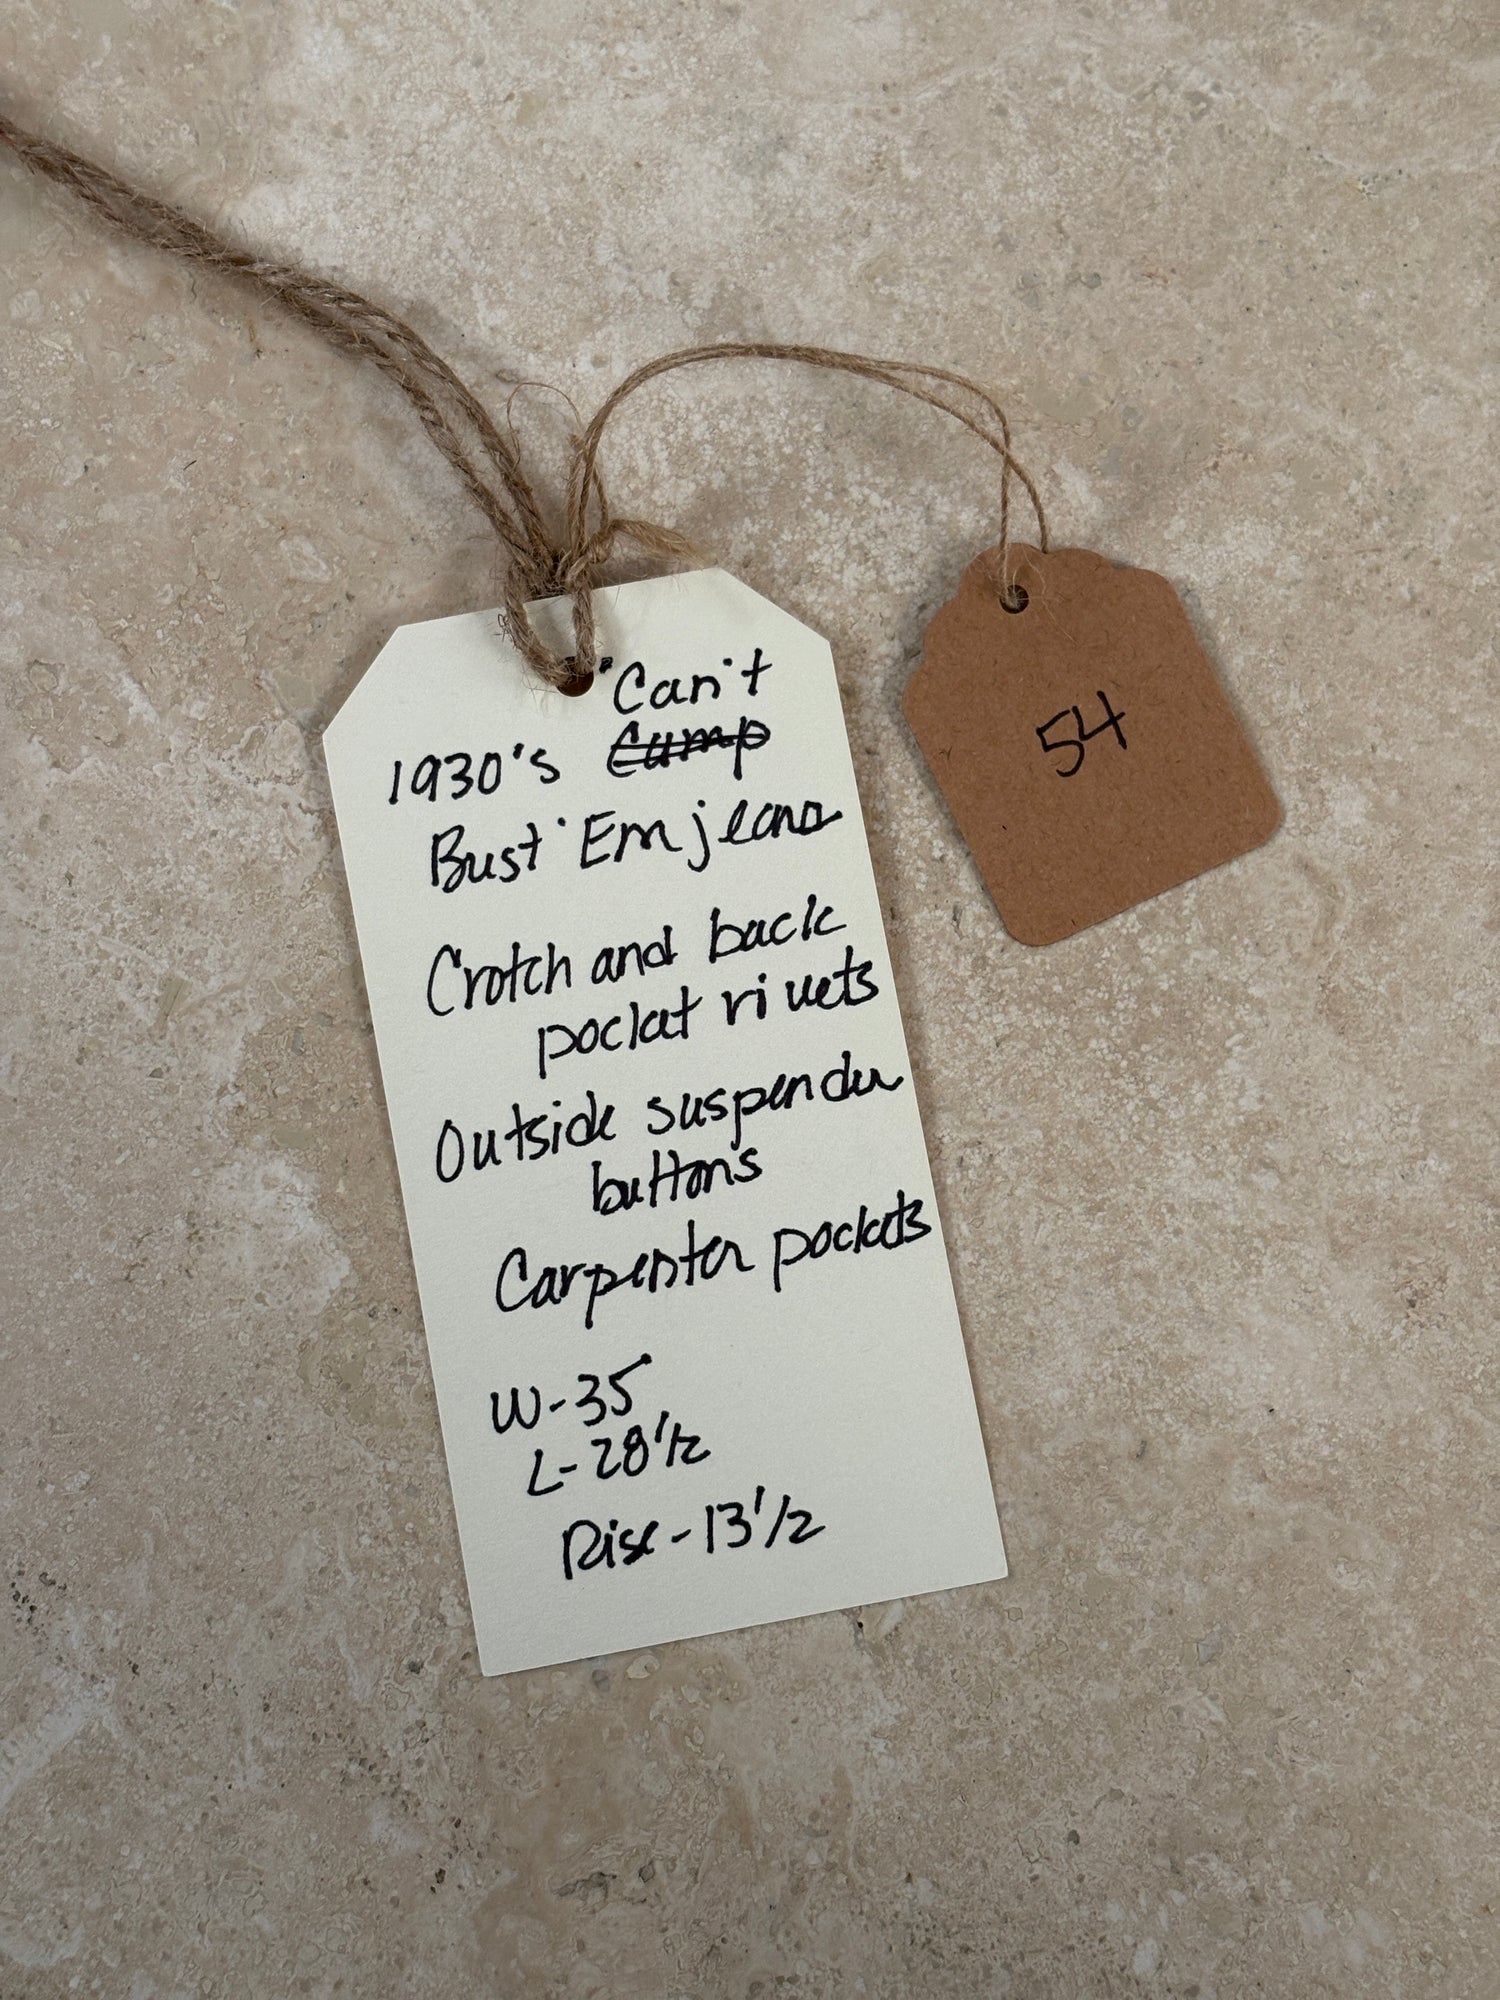 "Can't
1930's Camp
Bust 'Em jeans
Crotch and back
pocket rivets
Outside suspender
buttons
Carpenter pockets
W-35
L-28 1/2
Rise-13 1/2
54